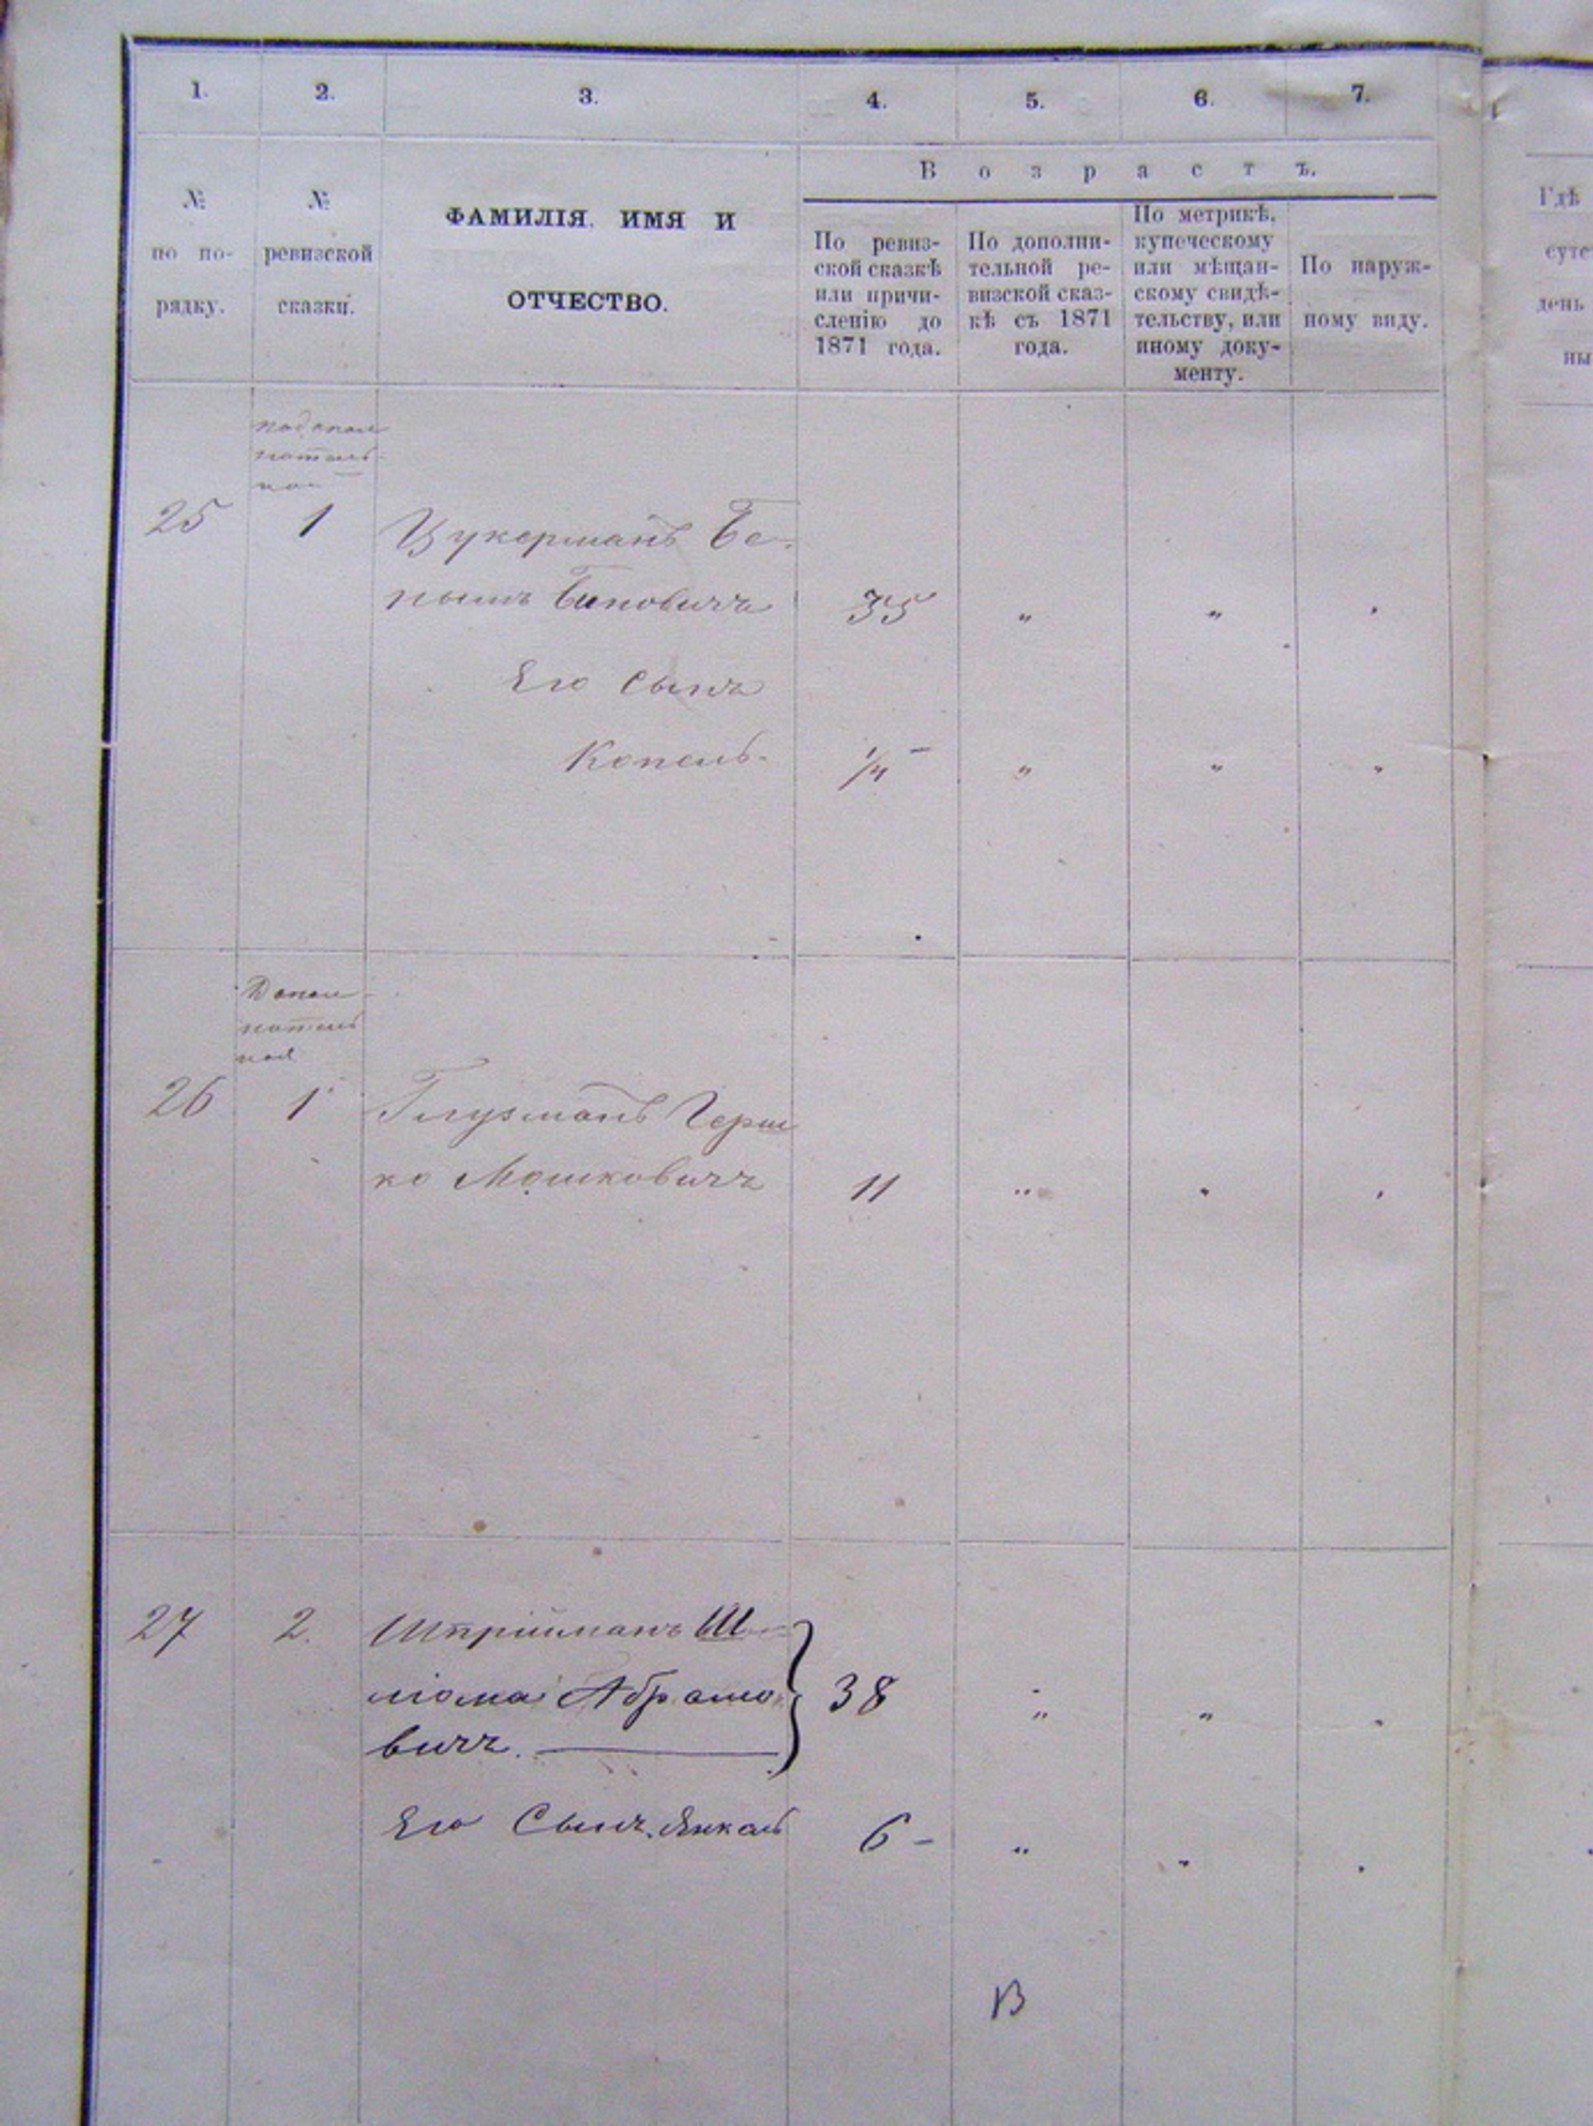 1. 2. 3. 4. 5. 6. 7.
№ по по-
рядку.
№ ревизской
сказки.
ФАМИЛІЯ, ИМЯ И
ОТЧЕСТВО.
Возрастъ.
По ревиз-
ской сказкѣ
или причи-
сленію до
1871 года.
По дополни-
тельной ре-
визской сказ-
кѣ съ 1871
года.
По метрикѣ,
купеческому
или мѣщан-
скому свидѣ-
тельству, или
иному доку-
менту.
По наруж-
ному виду.
Гдѣ
суте
день
ны
25 1 Цукерманъ Бе-
Его сынъ 35 " " "
Копель 1/4 - " " "
Допол-
нитель
ная
26 1 Глузманъ Герш
ко Мошковичъ 11 " " "
27 2. Штрийманъ Ш
ліома Абрамо 38 " " "
вичъ.
Его Сынъ Янкель 6 - " " "
В